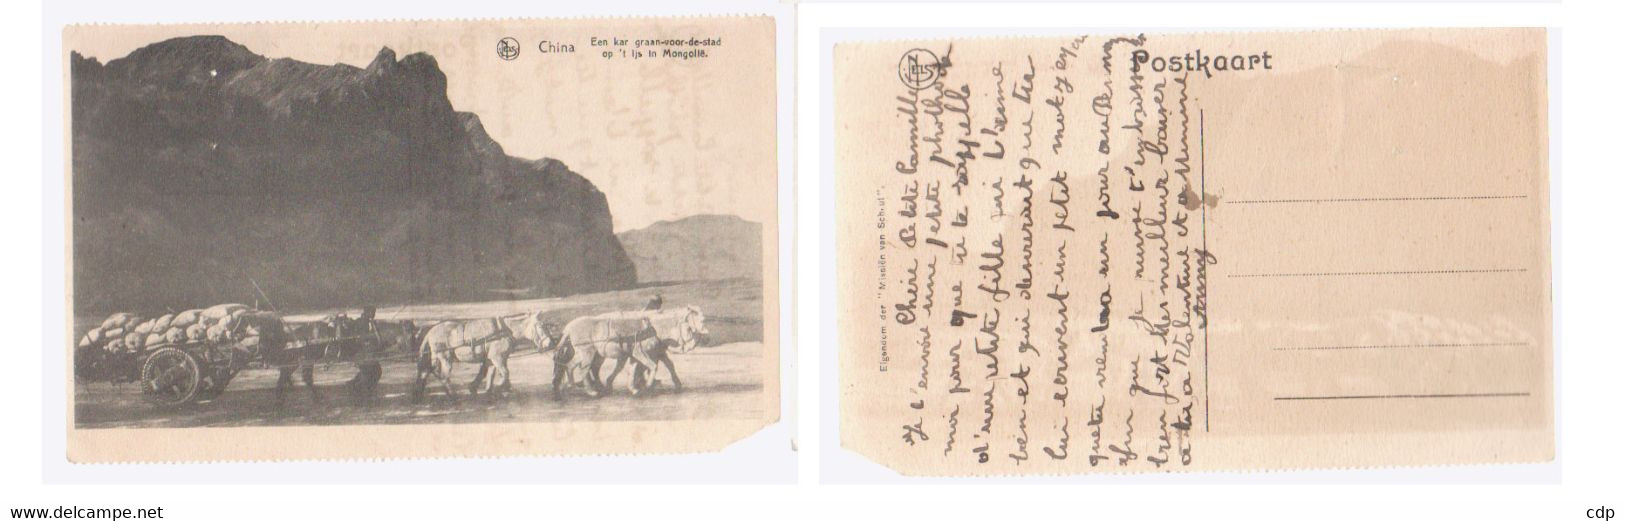 China
Een kar graan-voor-de-stad
op 't Ijs in Mongolië.
Postkaart
Eigendom der "Missiën van Scheut".
Chérie Petite Camille
Je t'envoie une petite photo
moi pour que tu te rappelle
d'une petite fille qui t'aime
bien et qui demerait que tu
lui ecrivent un petit mot
que tu viendras un jour
afin que je puisse t'embrasser
bien fort Mes meilleur baiser
a toi a Valentine et a
www.delcampe.net
cdp